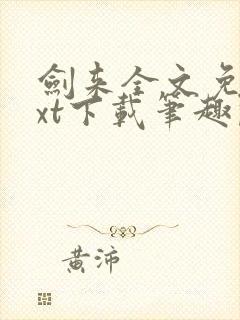 劍来全文免
xt下載筆趣
黃沛